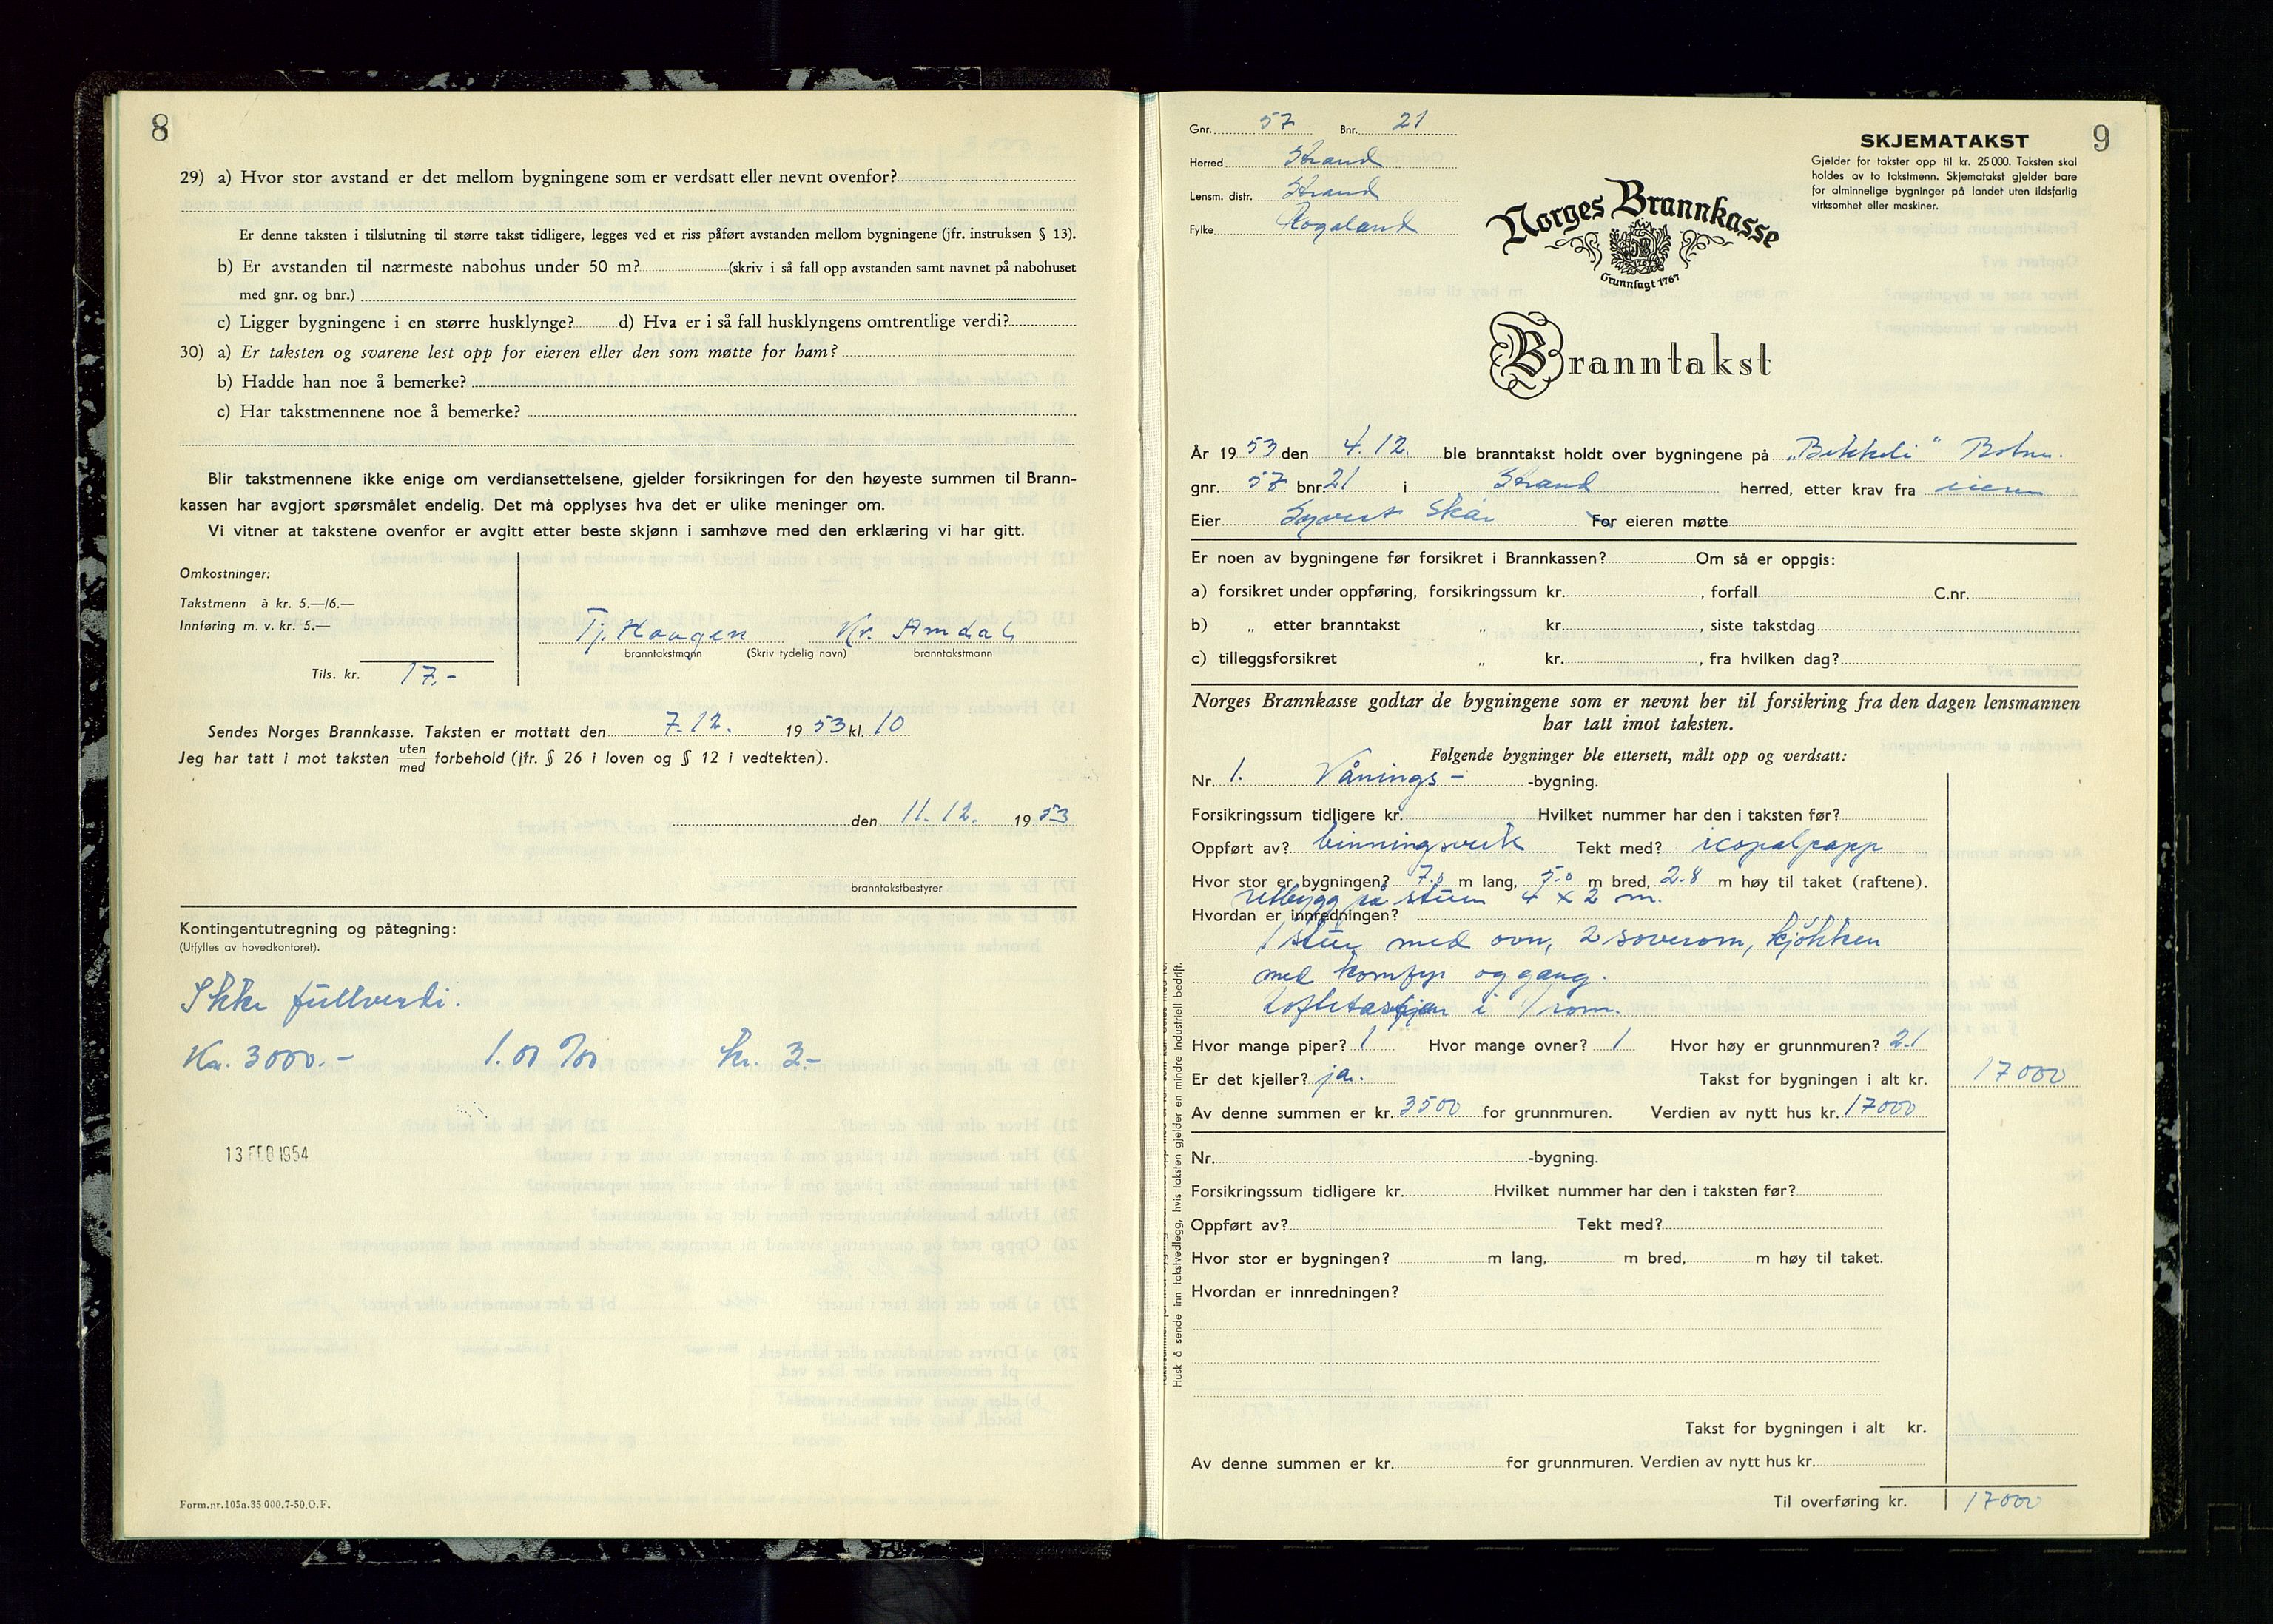 8
29) a) Hvor stor avstand er det mellom bygningene som er verdsatt eller nevnt ovenfor?
Er denne taksten i tilslutning til større takst tidligere, legges ved et riss påført avstanden mellom bygningene (jfr. instruksen § 13).
b) Er avstanden til nærmeste nabohus under 50 m? (skriv i så fall opp avstanden samt navnet på nabohuset
med gnr. og bnr.)
c) Ligger bygningene i en større husklynge? d) Hva er i så fall husklyngens omtrentlige verdi?
30) a) Er taksten og svarene lest opp for eieren eller den som møtte for ham?
b) Hadde han noe å bemerke?
c) Har takstmennene noe å bemerke?
Blir takstmennene ikke enige om verdiansettelsene, gjelder forsikringen for den høyeste summen til Brann-
kassen har avgjort spørsmålet endelig. Det må opplyses hva det er ulike meninger om.
Vi vitner at takstene ovenfor er avgitt etter beste skjønn i samhøve med den erklæring vi har gitt.
Omkostninger:
Takstmenn à kr. 5.—/6.—
Innføring m. v. kr. 5.—
Tj. Haugen Kr. Amdal
branntakstmann (Skriv tydelig navn) branntakstmann
Tils. kr. 17.-
Sendes Norges Brannkasse. Taksten er mottatt den 7.12. 1953 kl. 10
Jeg har tatt i mot taksten uten/med forbehold (jfr. § 26 i loven og § 12 i vedtekten).
den 11.12. 1953
branntakstbestyrer
Kontingentutregning og påtegning:
(Utfylles av hovedkontoret).
Ikke fullverdi.
Kr. 3000.- 1.00 ‰ kr. 3.-
13 FEB 1954
Form.nr.105a.35 000.7-50.O.F.
9
Gnr. 57 Bnr. 21
Herred Strand
Lensm. distr. Strand
Fylke Rogaland
SKJEMATAKST
Gjelder for takster opp til kr. 25 000. Taksten skal
holdes av to takstmenn. Skjematakst gjelder bare
for alminnelige bygninger på landet uten ildsfarlig
virksomhet eller maskiner.
Norges Brannkasse
Grunnlagt 1767
Branntakst
År 1953 den 4.12. ble branntakst holdt over bygningene på „Bekkeli"
gnr. 57 bnr. 21 i Strand herred, etter krav fra eieren
Eier Skår For eieren møtte
Er noen av bygningene før forsikret i Brannkassen? Om så er oppgis:
a) forsikret under oppføring, forsikringssum kr. , forfall C.nr.
b) „ etter branntakst „ kr. , siste takstdag
c) tilleggsforsikret „ kr. , fra hvilken dag?
Norges Brannkasse godtar de bygningene som er nevnt her til forsikring fra den dagen lensmannen
har tatt imot taksten.
Følgende bygninger ble ettersett, målt opp og verdsatt:
Nr. 1. Vånings- -bygning.
Forsikringssum tidligere kr. Hvilket nummer har den i taksten før?
Oppført av? binningsverk Tekt med? icopalpapp
Hvor stor er bygningen? 7.0 m lang, 5.0 m bred, 2.8 m høy til taket (raftene).
utbygg på stuen 4 x 2 m.
Hvordan er innredningen?
1 stue med ovn, 2 soverom, kjøkken
med komfyr og gang.
Loftetasjen i 1 rom.
Hvor mange piper? 1 Hvor mange ovner? 1 Hvor høy er grunnmuren? 2.1
Er det kjeller? ja. Takst for bygningen i alt kr. 17000
Av denne summen er kr. 3500 for grunnmuren. Verdien av nytt hus kr. 17000
Nr. -bygning.
Forsikringssum tidligere kr. Hvilket nummer har den i taksten før?
Oppført av? Tekt med?
Hvor stor er bygningen? m lang, m bred, m høy til taket.
Hvordan er innredningen?
Takst for bygningen i alt kr.
Av denne summen er kr. for grunnmuren. Verdien av nytt hus kr.
Til overføring kr. 17000
Husk å sende inn takstvedlegg, hvis taksten gjelder en mindre industriell bedrift.